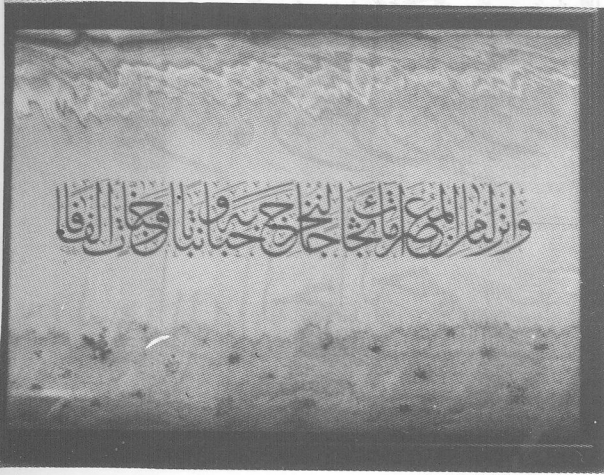 وانزلنا من المعصرات ماء ثجاجا لنخرج به حبا ونباتا وجنات الفافا